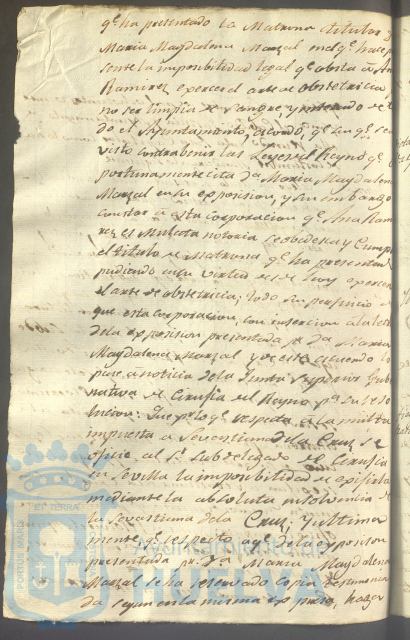 qe. ha presentado la Matrona titular
Maria Magdalena Marzal en el qe. hace pre
sente la imposibilidad legal qe. obsta a Ana
Ramirez exercer el arte de obstetricia
no ser limpia de sangre y enterado de to
do el Ayuntamiento, acordó, qe. sin qe. sea
visto contrabenir las Leyes del Reyno qe.
portunamente cita da. Maria Magdalena
Marzal en su exposicion, y sin embargo
constar a esta corporacion qe. Ana Rami
rez es Mulata notoria se obedezca y cumpla
el titulo de Matrona qe. ha presentado
pudiendo en su virtud desde hoy exercer
el arte de obstetricia, todo sin perjuicio de
que esta corporacion, con insercion a la letra
de la exposicion presentada pr. Da. Maria
Magdalena Marzal y de este acuerdo lo
pase a noticia de la Junta Superior Guber
nativa de Cirugia del Reyno pa. su reso
lucion: Que pr. lo qe. respecta a la multa
impuesta a Sevastiana de la Cruz se
oficie al Sr. Subdelegado de Cirugia
en Sevilla la imposibilidad de exigirla
mediante la absoluta insolvencia de
la Sevastiana de la Cruz, y ultima
mente qe. respecto a qe. de la exposicion
presentada pr. Da. Maria Magdalena
Marzal se ha reservado copia
da segun en la misma expresa, haga
PORTUS MARIS
ET TERRAE
Ayuntamiento de
HUELVA